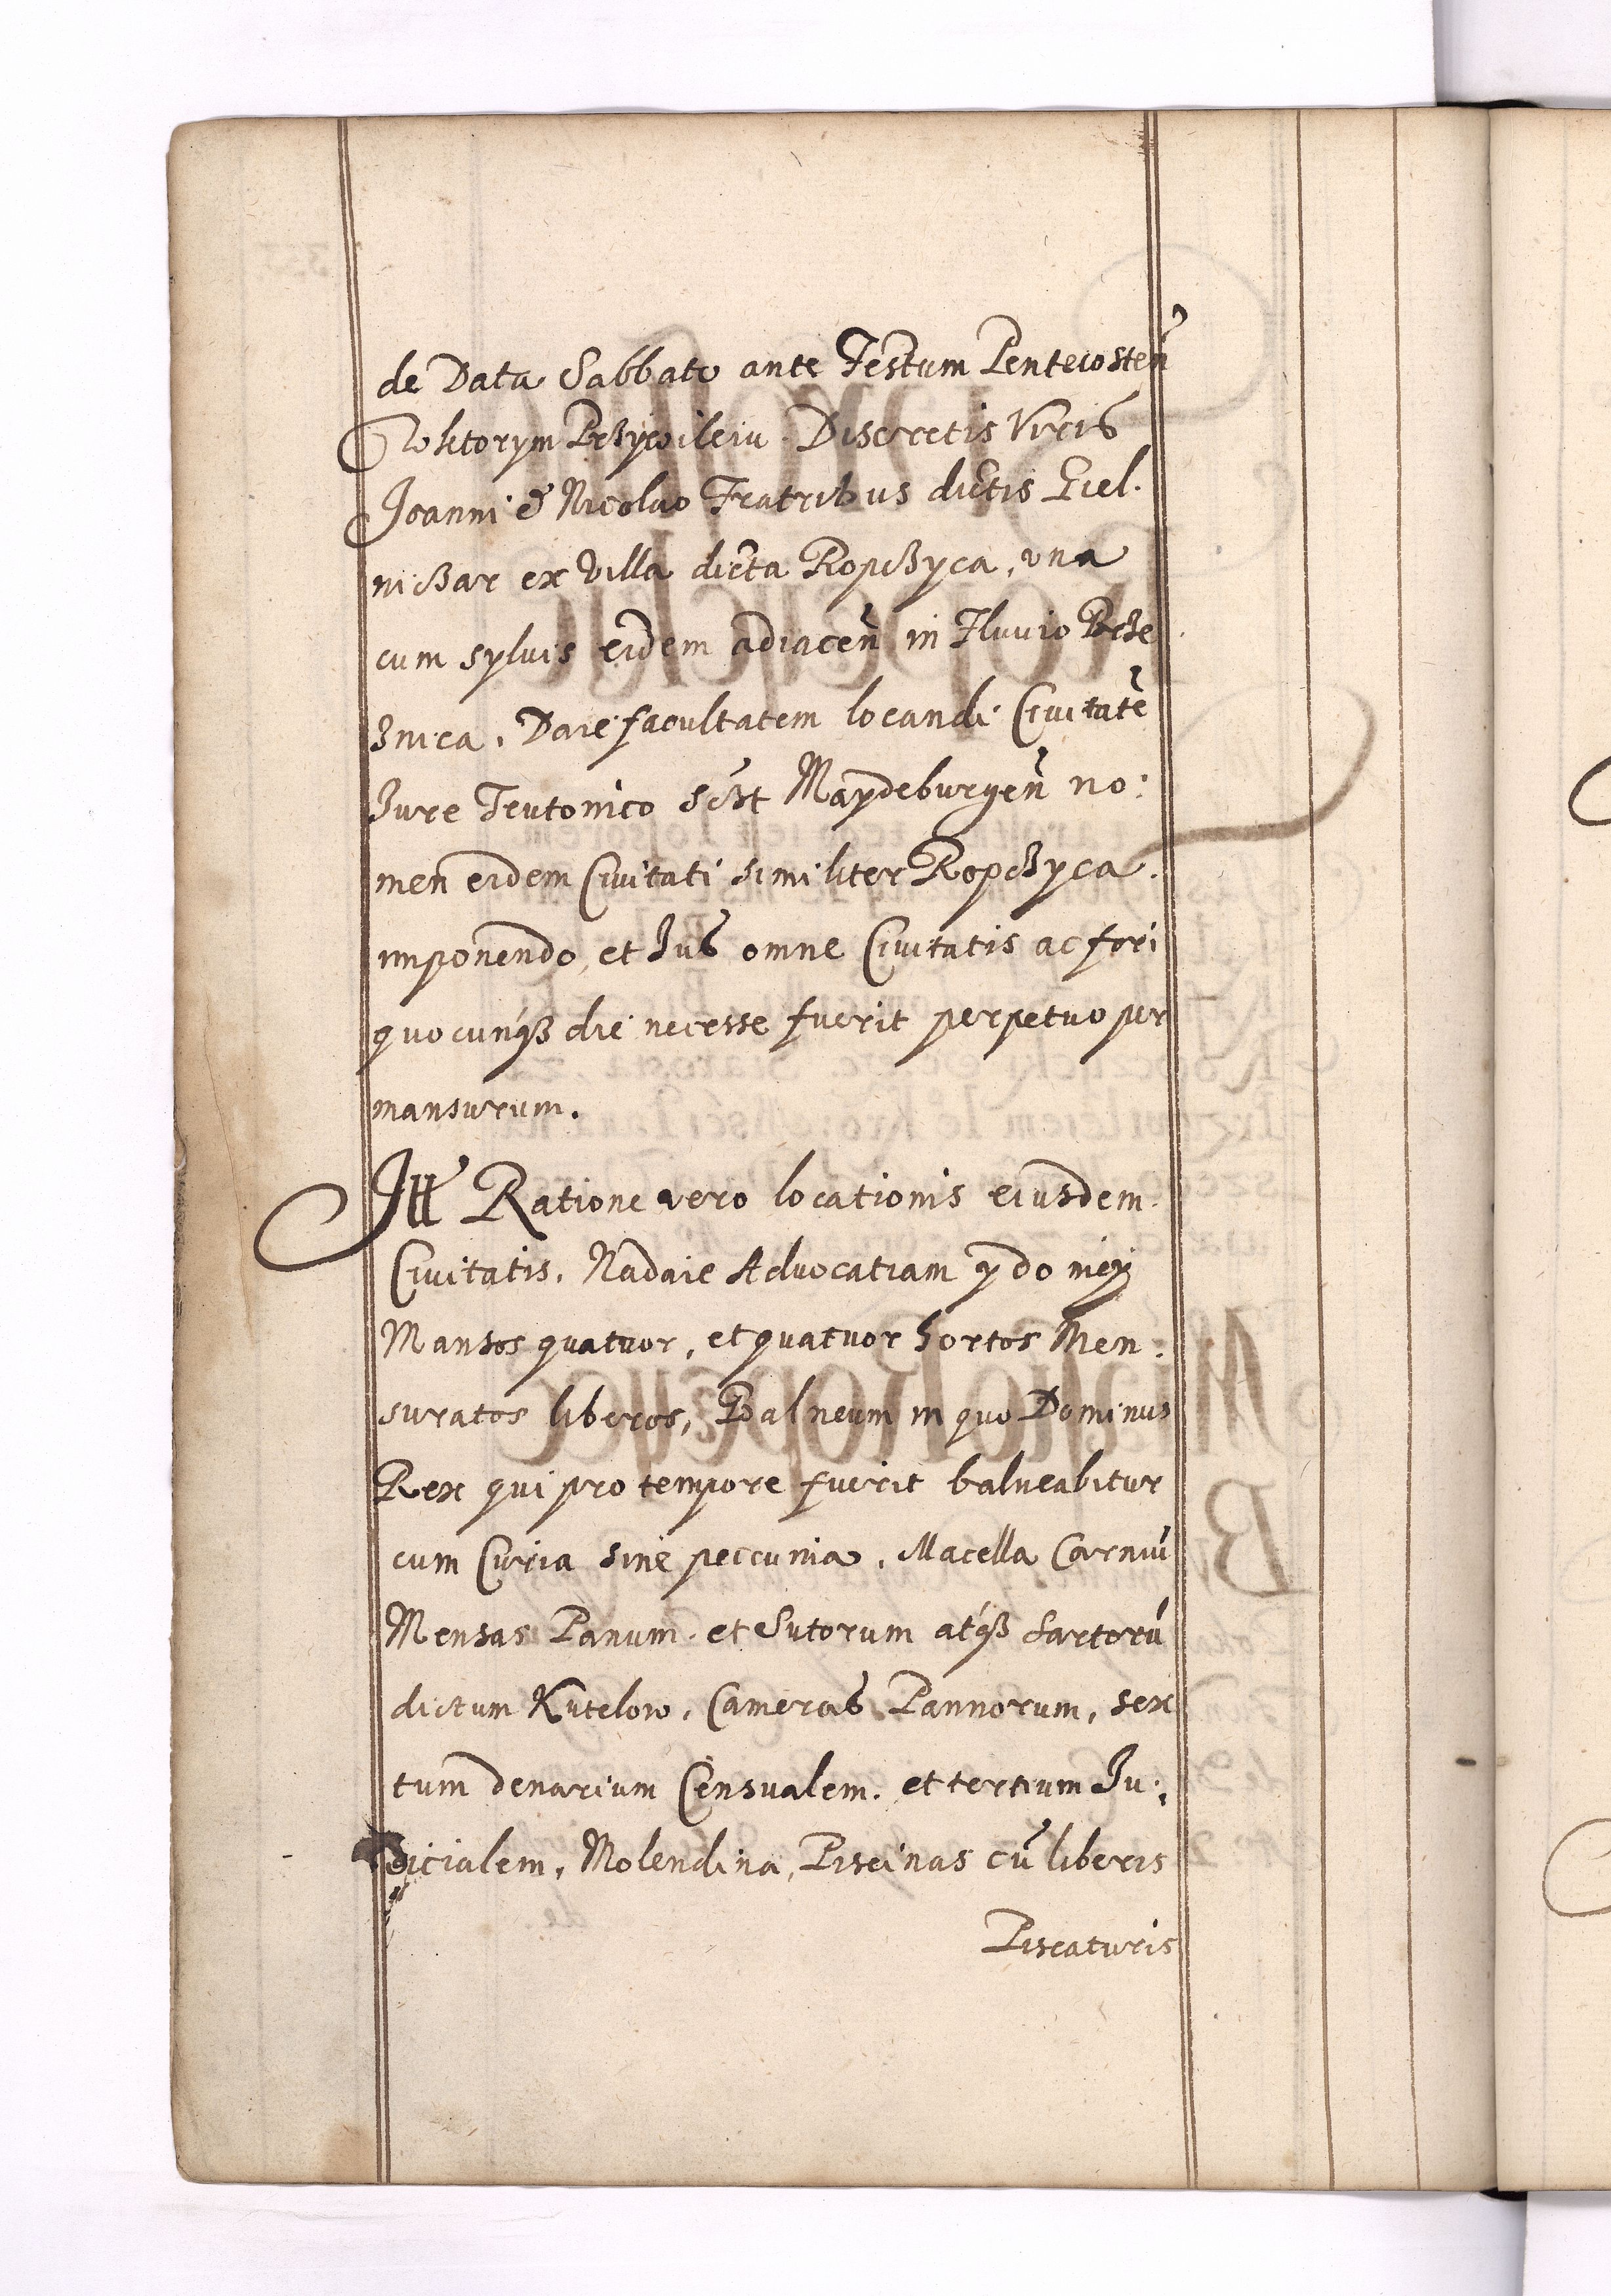 de Data Sabbato ante Festum Pentecosteñ
W ktorym Przywileiu. Discretis Viris
Joanni & Nicolao Fratribus dictis Giel.
niczar ex Villa dicta Ropczyca, una
cum sylvis eidem adiaceñ in Fluvio Brze
znica. Daie facultatem locandi Civitatē
Jure Teutonico sc̃zt Maydeburgeñ no:
men eidem Civitati similiter Ropczyca.
imponendo, et Jus omne Civitatis ac fori
quocunqȝ die necesse fuerit perpetuo per
mansurum.
Itt Ratione vero locationis eiusdem.
Civitatis. Nadaie Advocatiam y do niey
Mansos quatuor, et quatuor hortos Men:
suratos liberos, Balneum in quo Dominus
Rex qui pro tempore fuerit balneabitur
cum Curia sine peccunia. Macella Carniū
Mensas Panum. et Sutorum atqȝ Sartorū
dictum Kutelow, Cameras Pannorum, sex
tum denarium Censualem. et tertium Ju:
dicialem, Molendina, Piscinas cū liberis
Piscaturis